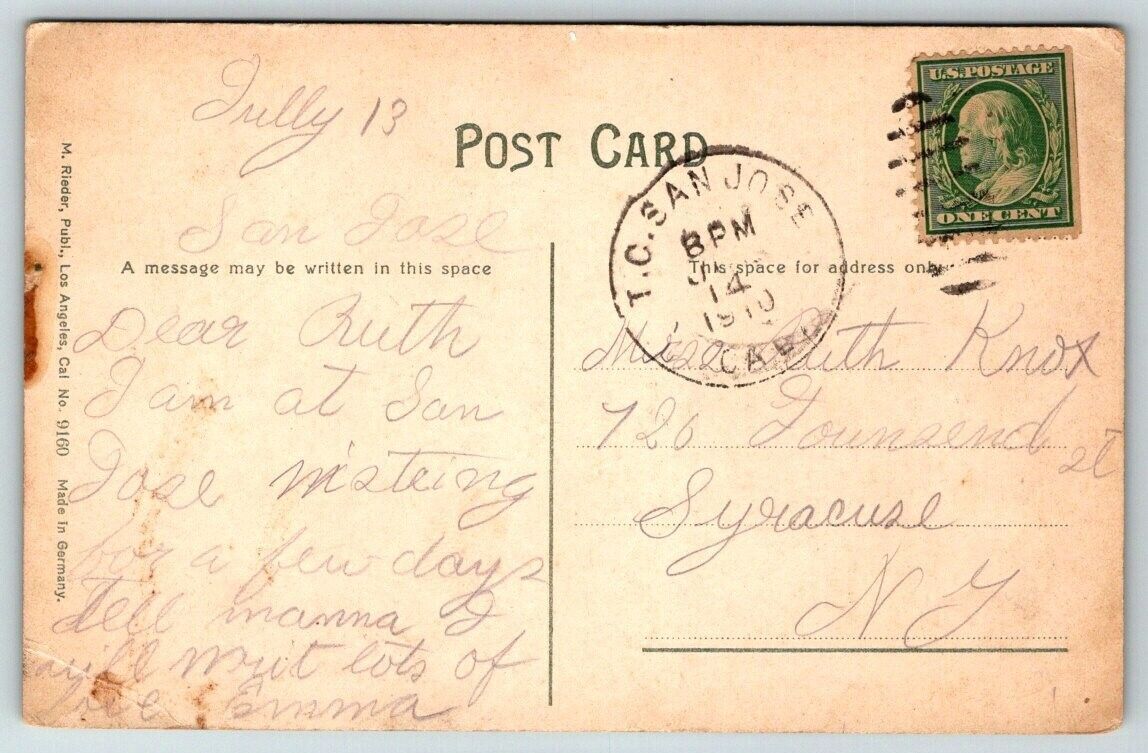 Jully 13
POST CARD
U.S. POSTAGE
ONE CENT
San Jose
T.C. SAN JOSE
8 PM
14
1910
CAL
A message may be written in this space
This space for address only
Dear Ruth
I am at San
Jose visteing
for a few days
Tell mamma I
will writ lots of
love Emma
Miss Ruth Knox
726 Townsend st
Syracuse
N Y
M. Rieder, Publ., Los Angeles, Cal No. 9160 Made in Germany.